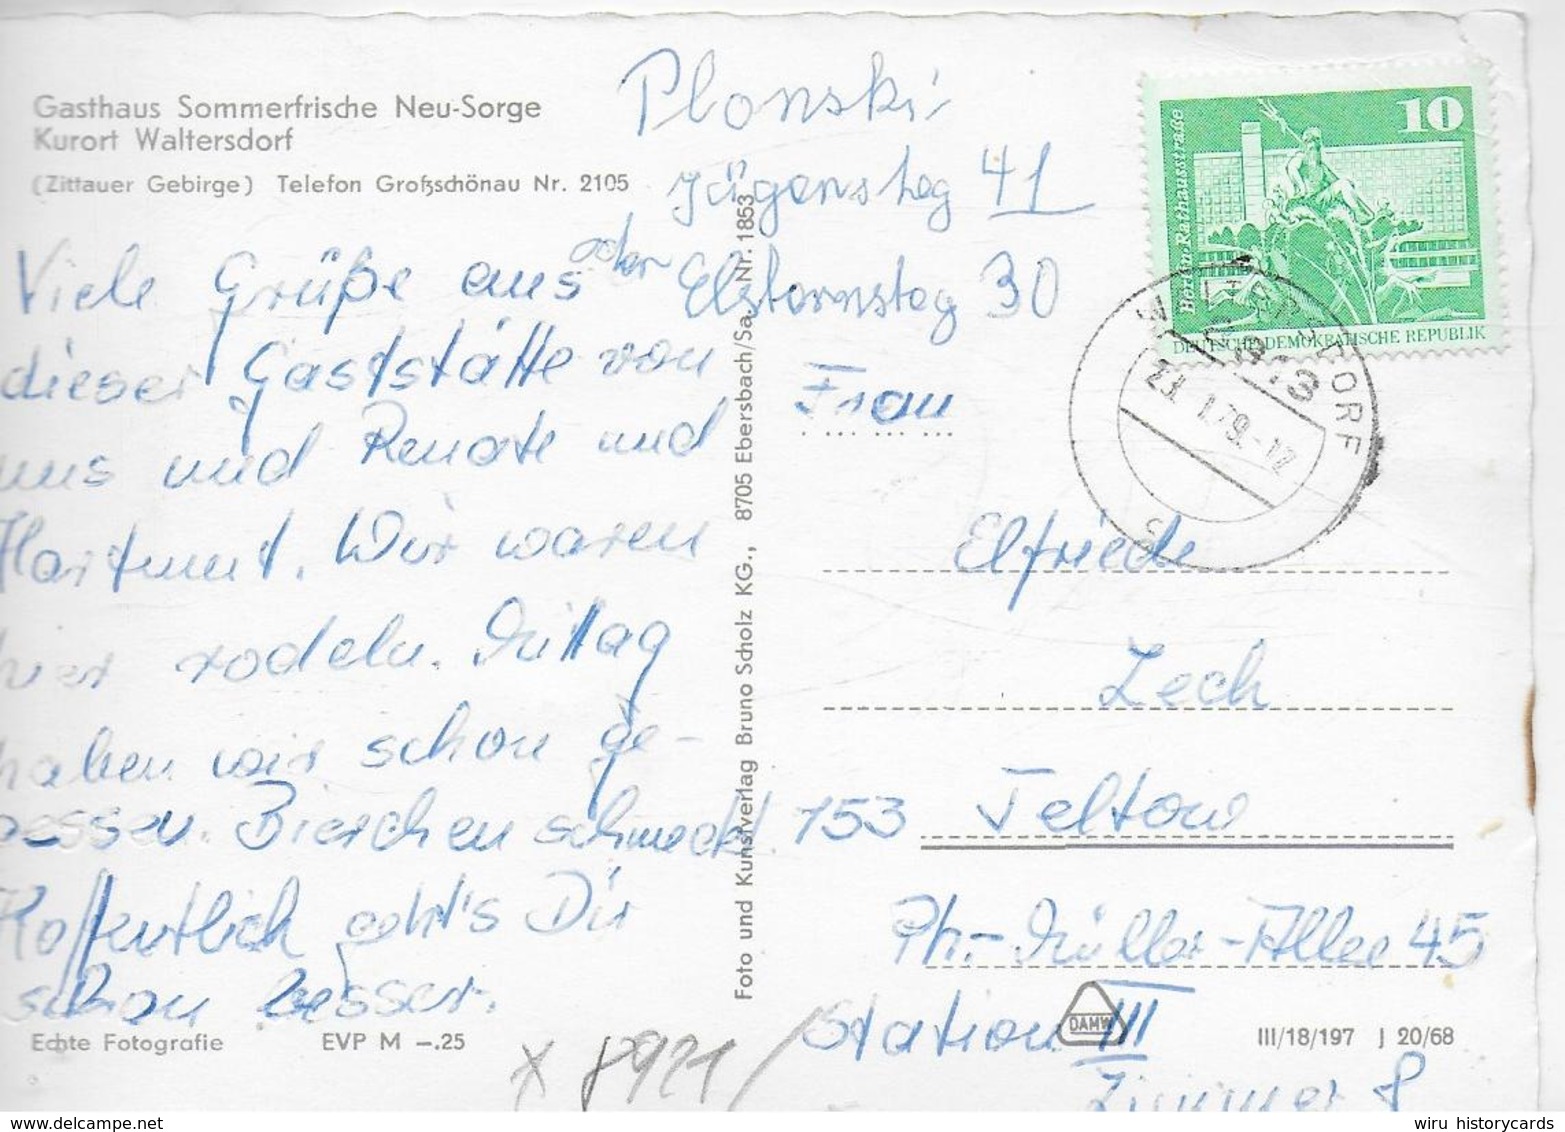 Gasthaus Sommerfrische Neu-Sorge
Kurort Waltersdorf
(Zittauer Gebirge) Telefon Großschönau Nr. 2105
Viele Grüße aus
dieser Gaststätte von
uns und Renate und
Hartmut. Wir waren
hier rodeln. Mittag
haben wir schon ge-
gessen. Bierchen schmeckt.
Hoffentlich geht's Dir
schon besser.
Echte Fotografie EVP M –.25
x 8921/
Foto und Kunstverlag Bruno Scholz KG., 8705 Ebersbach/Sa. Nr. 1853
Plonski
41
oder 30
10
Berlin, Rathausstraße
DEUTSCHE DEMOKRATISCHE REPUBLIK
WALTERSDORF
8813
23. 1.79.-17
Frau
Elfriede
Zech
153 Teltow
Ph.-Müller-Allee 45
Station III
Zimmer 8
DAMW
III/18/197 J 20/68
wiru historycards